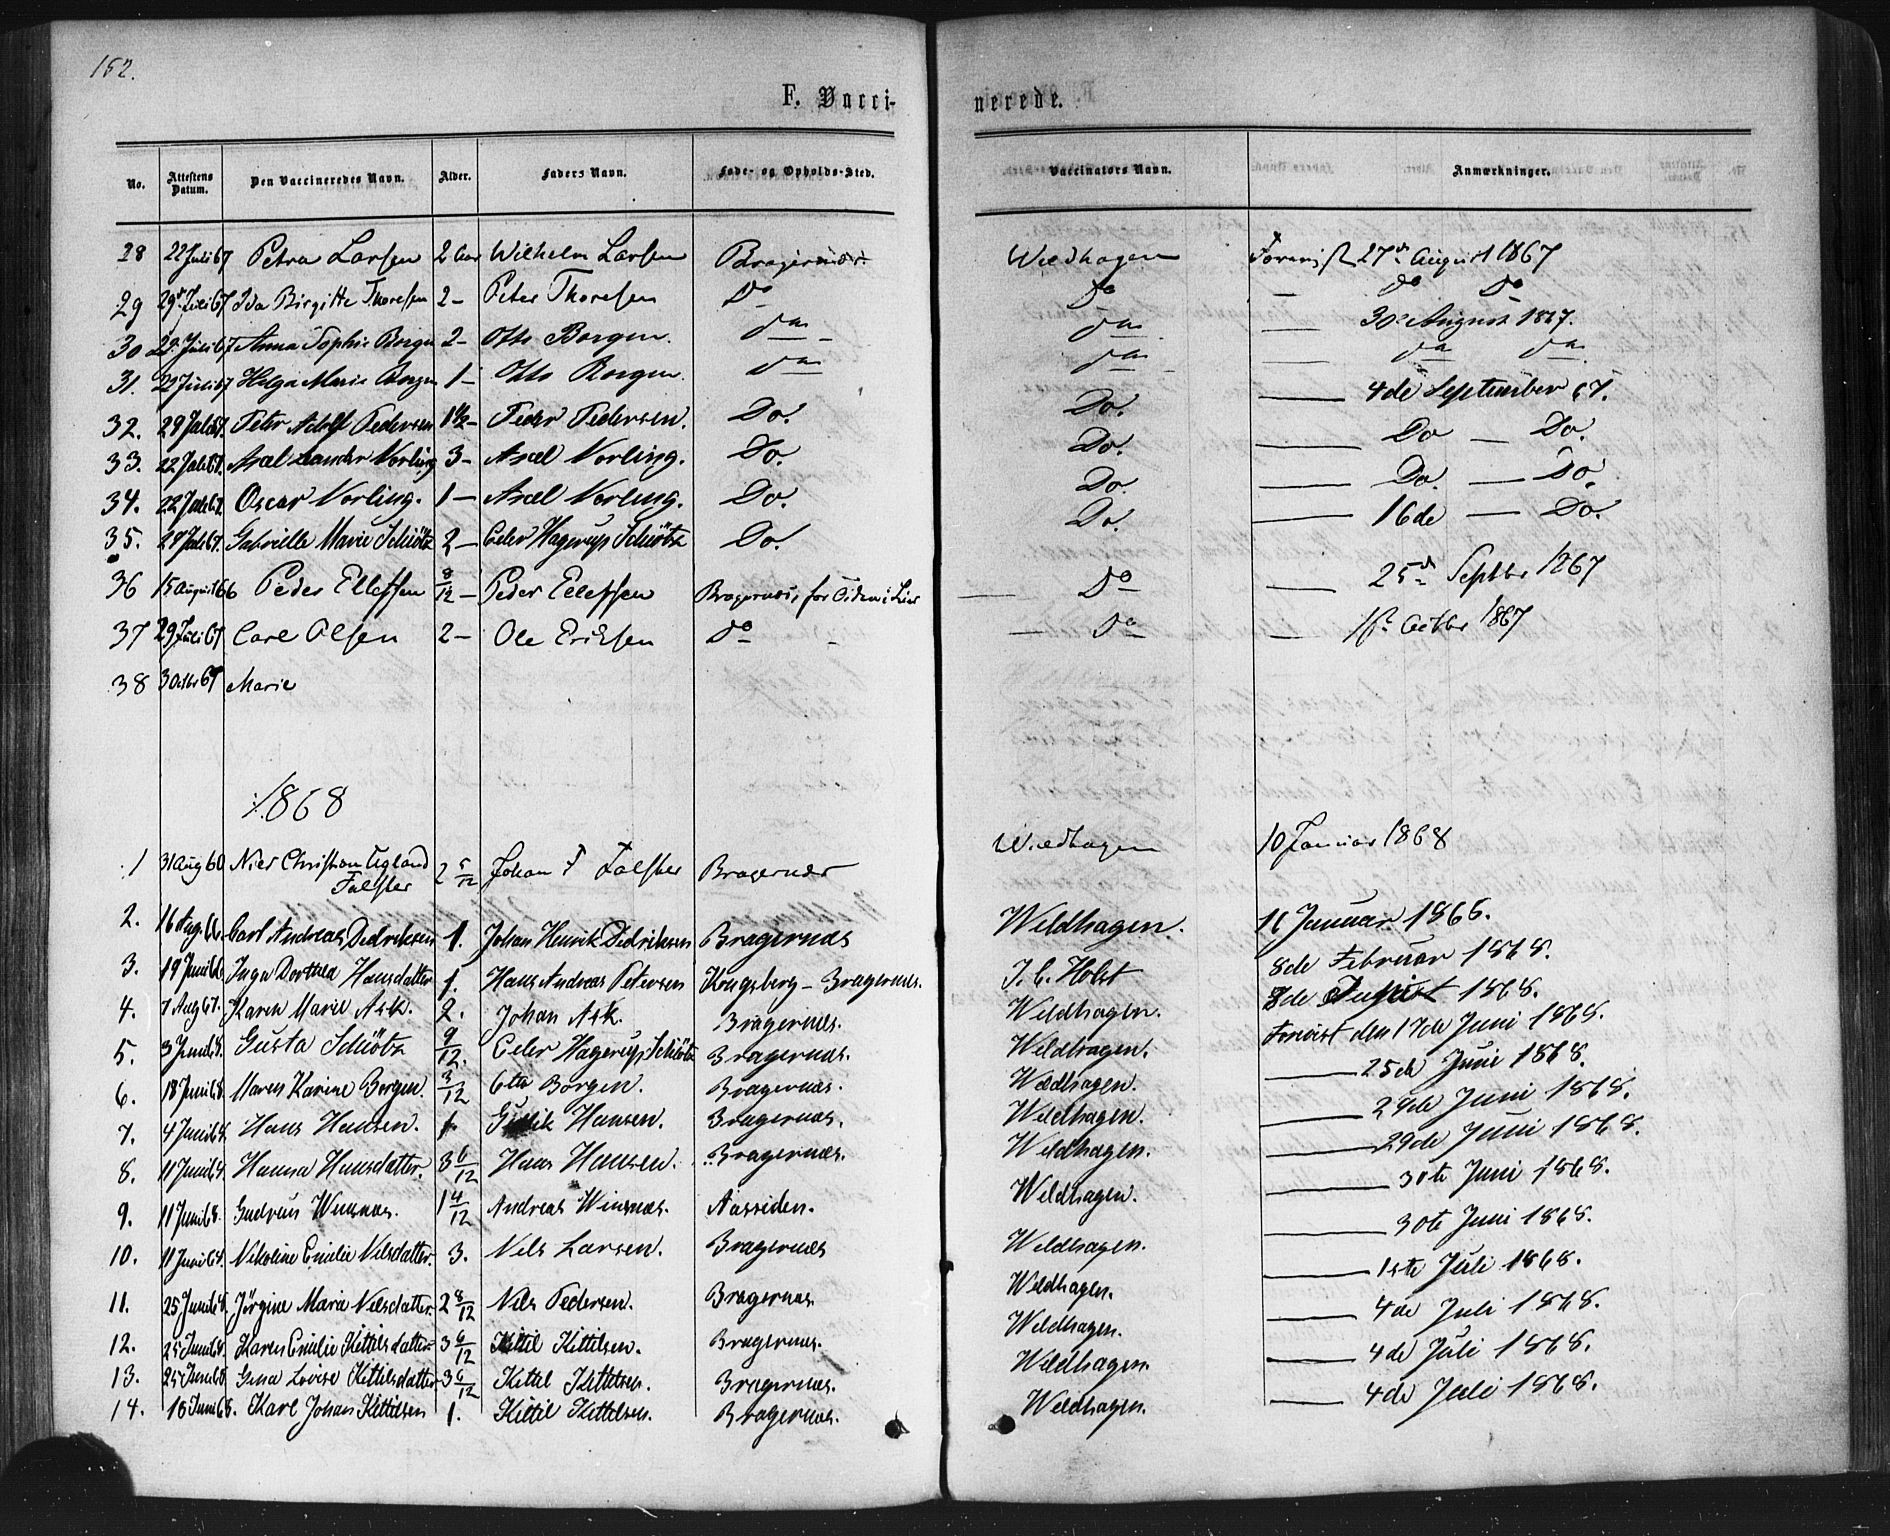 152.
F. Vacci- nerede.
No. Attestens Datum. Den Vaccineredes Navn. Alder. Faders Navn. Føde- og Opholds-Sted. Vaccinators Navn. Anmærkninger.
28 22 Juli 67 Petra Larsen 2 Aar Wilhelm Larsen Bragernæs. Wildhagen Forevist 27de August 1867
29 29 Juli 67 Ida Birgitte Thoresen 2 – Peter Thoresen Do Do — do Do
30 29 Juli 67 Anna Sophie Borgen 2 – Otto Borgen. do do — 30 August 1867.
31. 29 Juli 67 Helga Marie Borgen 1 – Otto Borgen. do do — do do
32. 29 Juli 67. Peter Adolf Pedersen 1 1/2 – Peder Pedersen. Do. Do. — 4de September 67.
33. 22 Juli 67. Axel Leander Norling 3 – Axel Norling. Do. Do. — Do — Do.
34. 22 Juli 67. Oscar Norling. 1 – Axel Norling. Do. Do. — Do. — Do.
35. 29 Juli 67. Gabrielle Marie Schiötz 2 – Eeler Hagerup Schiötz Do. Do. — 16de — Do.
36 15 August 66 Peder Ellefsen 8/12 – Peder Ellefsen Bragernæs, for Tiden i Lier — Do — 25de Septbr 1867
37 29 Juli 67 Carl Olsen 2 – Ole Eriksen Do — Do — 1ste Octbr 1867
38 3 Octbr 67 Marie
1868
1 31 Aug 60 Niels Christian Egland Falster 2 5/12 Johan F Falster Bragernæs Wildhagen 10 Januar 1868
2. 16 Aug. 66. Carl Andreas Dedriksen 1. Johan Henrik Dedriksen Bragernæs Weldhagen. 11 Januar 1868.
3. 19 Juni 66. Inga Dorthea Hansdatter 1. Hans Andreas Petersen Kongsberg – Bragernæs. J. C. Holst 8de Februar 1868.
4. 7 Aug 67. Karen Marie Ask. 2. Johan Ask. Bragernæs. Weldhagen. 8de August 1868.
5. 3 Juni 68. Gusta Schiötz 9/12. Eeler Hagerup Schiötz Bragernæs. Weldhagen. Forevist den 17de Juni 1868.
6. 18 Juni 68. Maren Karine Borgen. 3/12 Otto Borgen. Bragernæs. Weldhagen. — 25de Juni 1868.
7. 4 Juni 68. Hans Hansen. 1. Gulik Hansen. Bragernæs. Weldhagen. — 29de Juni 1868.
8. 11 Juni 68. Hanna Hansdatter. 3 6/12 Hans Hansen. Bragernæs. Weldhagen. — 29de Juni 1868.
9. 11 Juni 68. Gudrun Winsnæs. 1 4/12 Andreas Winsnæs. Aassiden. Weldhagen. — 30te Juni 1868.
10. 11 Juni 68. Nikoline Emilie Nilsdatter. 3. Nils Larsen. Bragernæs Weldhagen. — 30te Juni 1868.
11. 25 Juni 68. Jörgine Marie Nilsdatter. 2 8/12 Nils Pedersen. Bragernæs. Weldhagen. — 1ste Juli 1868.
12. 25 Juni 68. Karen Emilie Kittilsdatter 3 6/12 Kittil Kittilsen. Bragernæs. Weldhagen. — 4de Juli 1868.
13. 25 Juni 68. Gina Lovise Kittilsdatter 3 6/12 Kittil Kittilsen. Bragernæs. Weldhagen. — 4de Juli 1868.
14. 18 Juni 68. Karl Johan Kittilsen 1. Kittil Kittilsen. Bragernæs. Weldhagen. — 4de Juli 1868.